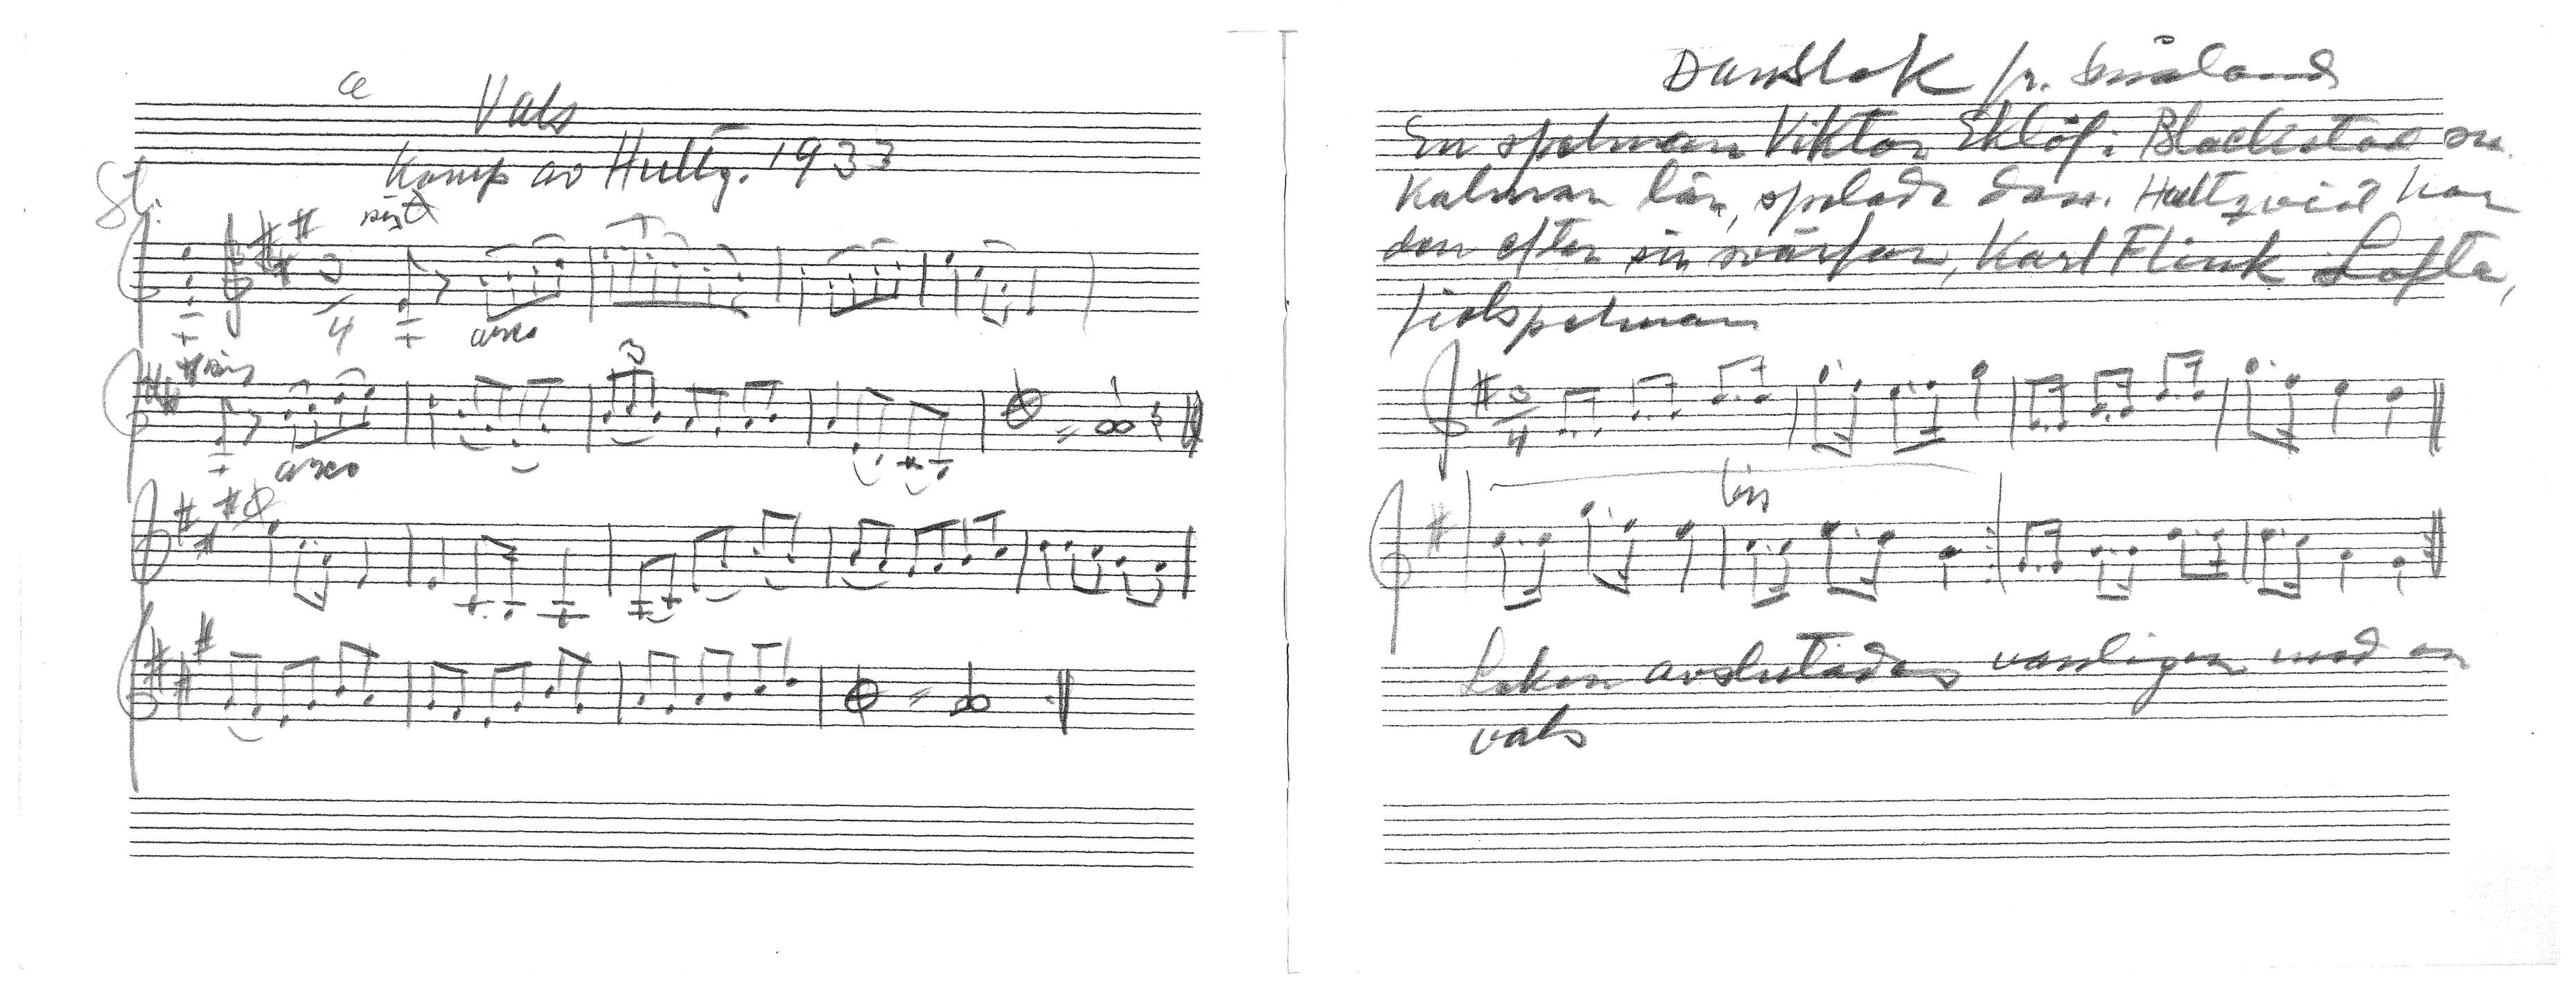 a
Vals
Komp av Hultq. 1933
St:
arco
arco
3
Danslek fr. Småland
En spelman Viktor Eklöf i Blackstad sn.
Kalmar län, spelade den. Hultqvist har
den efter sin svärfar, Karl Flink Lofta,
fiolspelman
3
4
bis
Leken avslutades vanligen med en
vals